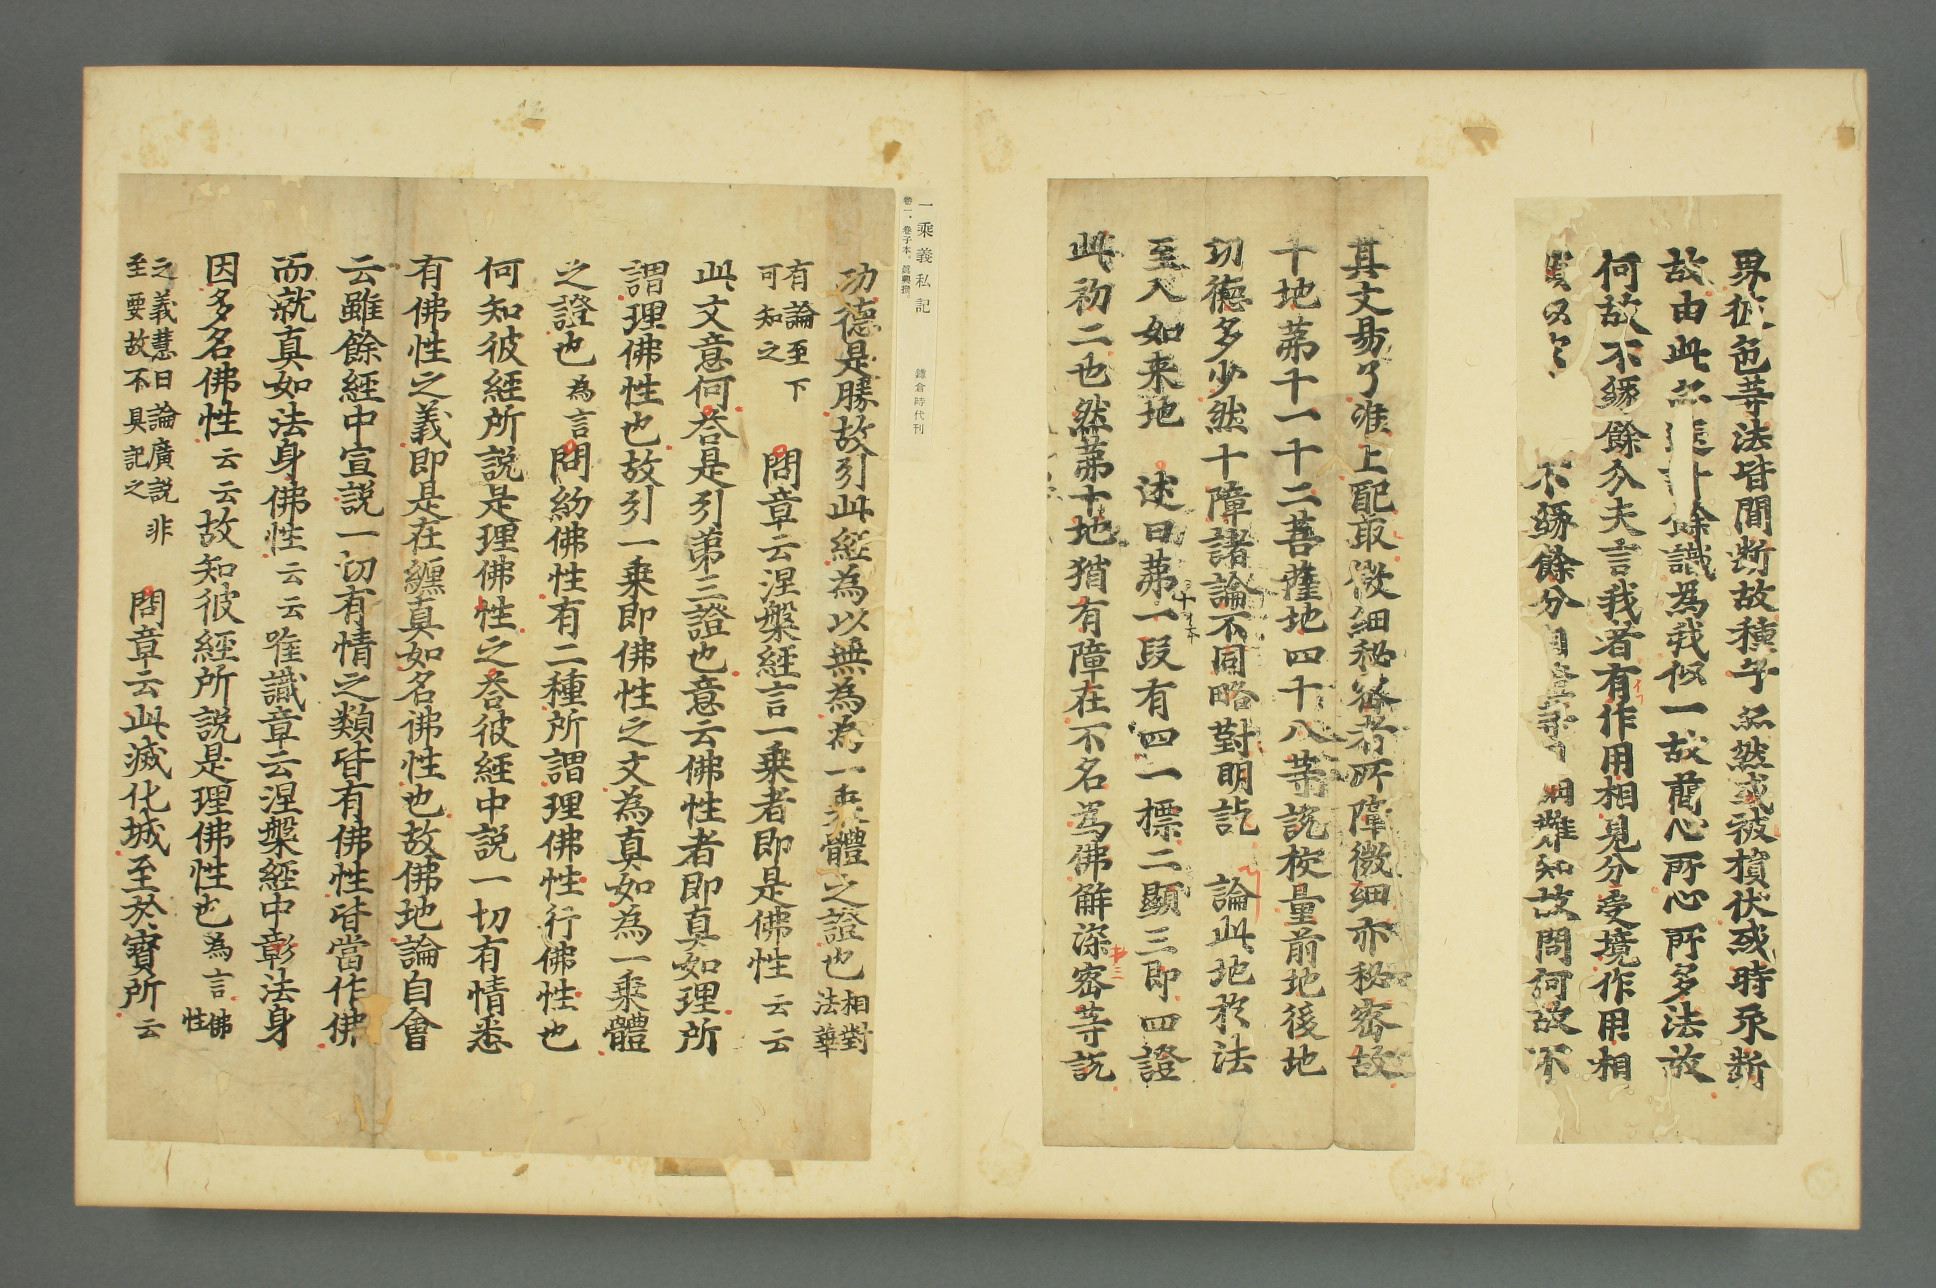 界彼色等法皆間断故種子亦然或被損伏或時永断
故由此亦 計餘識為我似一故簡心所心所多法故
何故不縁餘分夫言我者有作用相見分受境作用相
不縁餘分 相難知故問何故不
其文易了准上配取微細秘密者所障微細亦秘密故
十地第十一十二菩薩地四十八等説校量前地後地
功德多少然十障諸論不同略對明訖 論此地於法
至入如来地 述曰第一段有四一標二顯三即四證
此初二也然第十地猶有障在不名為佛解深密等説
一乘義私記 鎌倉時代刊
卷一。卷子本。眞興撰。
功德是勝故引此經為以無為為一乘體之證也相對法華
有論至下可知之 問章云涅槃經言一乗者即是佛性云云
此文意何荅是引第三證也意云佛性者即真如理所
謂理佛性也故引一乗即佛性之文為真如為一乗體
之證也為言問約佛性有二種所謂理佛性行佛性也
何知彼經所説是理佛性之荅彼經中説一切有情悉
有佛性之義即是在纏真如名佛性也故佛地論自會
云雖餘經中宣説一切有情之類皆有佛性皆當作佛
而就真如法身佛性云云唯識章云涅槃經中彰法身
因多名佛性云云故知彼經所説是理佛性也為言佛性
之義慧日論廣説非至要故不具記之 問章云此滅化城至於寳所云